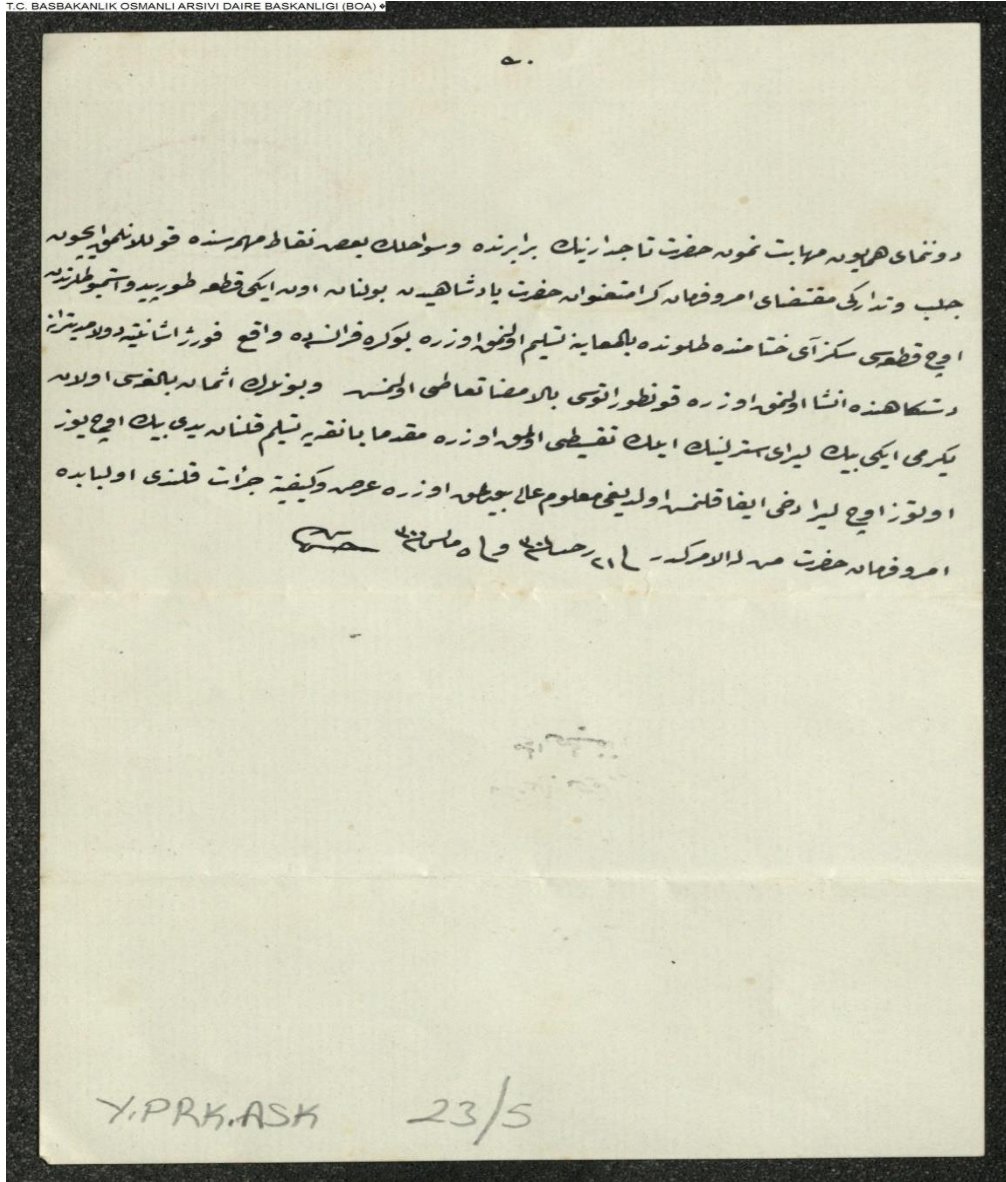 T.C. BASBAKANLIK OSMANLI ARSIVI DAIRE BASKANLIGI (BOA)
دوننمای همایون مهابت نمون حضرت تاجدارینك برابرنده وسواحلك بعض نقاط مهمه سنده قوللانلمق ایچون
جلب وتداركی مقتضای امر وفرمان كرامتعنوان حضرت پادشاهیدن بولنان اون ایكی قطعه طورپیدو استمبوطلرندن
اوچ قطعه سی سكز آی ختامنده طلونده بالمعاینه تسلیم اولنمق اوزره بوكره فرانسه ده واقع فورژ اشانتیه دولامدیترانه
دستكاهنده انشا اولنمق اوزره قونطوراتوسی بالامضا تعاطی اولنمش وبونلرك اثمان بالغه سی اولان
یكرمی ایكی بیك لیرای سترلینك ایلك تقسیطی اولمق اوزره مقدما بانقه یه تسلیم قلنان یدی بیك اوچ یوز
اوتوز اوچ لیرا دخی ایفا قلنمش اولدیغی معلوم عالی بیورلمق اوزره عرض وكیفیته جرأت قلندی اولبابده
امر وفرمان حضرت من له الامركدر فی ٢١ رجب ٣٠٢ وفی ٥ مایس ٣٠١
Y.PRK.ASK 23/5